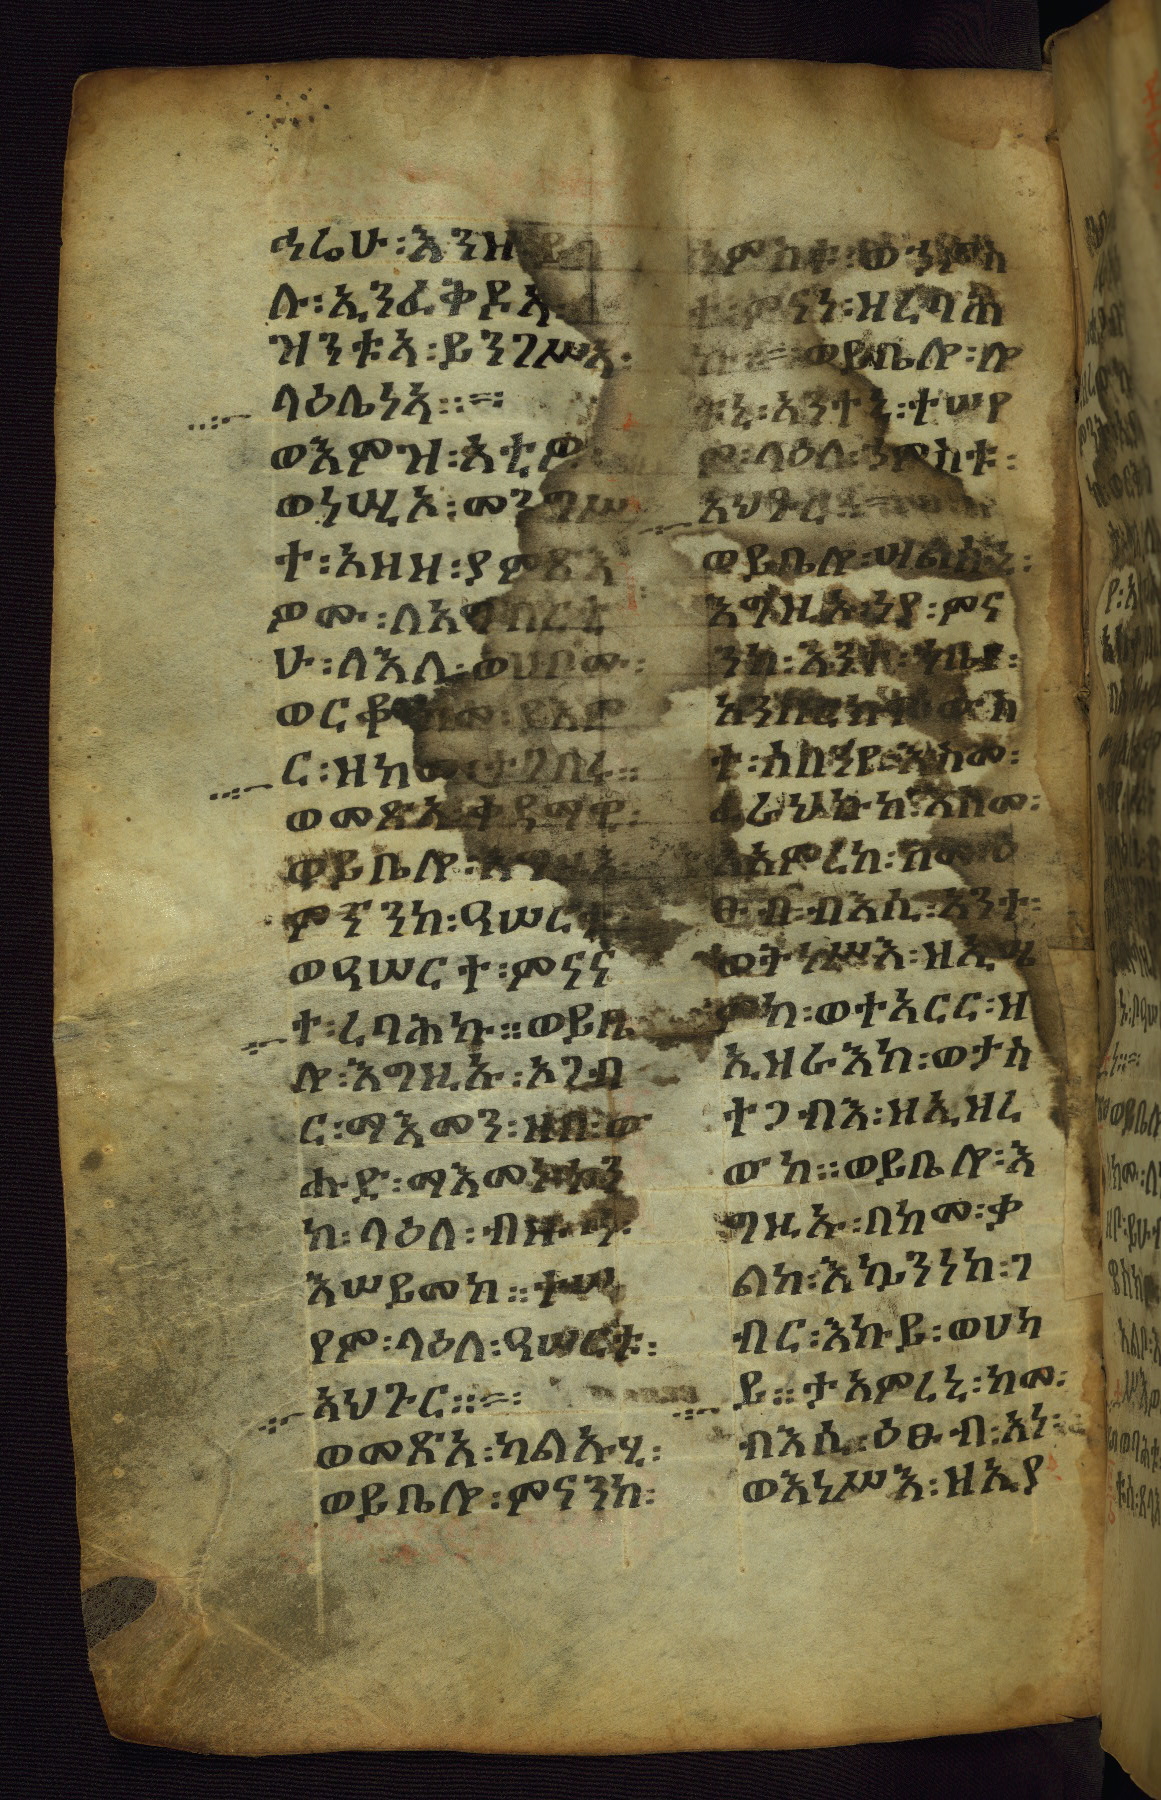 ኀሬሁ ፡ እንዘ ፡ ይብ
ሉ ፡ ኢንፈቅዶ ፡
ዝንቱኣ ፡ ይንግሥኣ ፡
ላዕሌነኣ ፡፡=፡
ወእምዝ ፡ አቲዎ ፡
ወነሢኦ ፡ መንግሥ
ተ ፡ አዘዘ ፡ ያምጽእ
ዎሙ ፡ ለአግብርቲ
ሁ ፡ ለእለ ፡ ወሀቦሙ ፡
ወርቆ ፡ ከመ ፡ ያእም
ር ፡ ዘከመ ፡ ተገበሩ ፡፡
ወመጽአ ፡ ቀዳማዊ ፡
ወይቤሎ ፡ እግዚኦ
ምናንከ ፡ ዓሠርቱ
ወዓሠርተ ፡ ምናና
ተ ፡ ረባሕኩ ፡፡ ወይቤ
ሎ ፡ እግዚኡ ፡ ኦገብ
ር ፡ ማእመን ፡ ዘበ ፡ ው
ሑድ ፡ ማእመነ ፡ ኮን
ከ ፡ ላዕለ ፡ ብዙኅ ፡
እሠይመከ ፡፡ ተሠ
የም ፡ ላዕለ ፡ ዓሠርቱ ፡
አህጉር ፡፡=፡
ወመጽአ ፡ ካልኡሂ ፡
ወይቤሎ ፡ ምናንከ ፡
ኀምስቱ ፡ ወኀምስ
ተ ፡ ምናነ ፡ ዘረባሕ
ኩ ፡=፡ ወይቤሎ ፡ ሎ
ቱኒ ፡ አንተኒ ፡ ተሠየ
ም ፡ ላዕለ ፡ ኀምስቱ ፡
አህጉር ፡፡
ወይቤሎ ፡ ሣልስኒ ፡
እግዚኦ ፡ ነያ ፡ ምና
ንከ ፡ እንተ ፡ ኀቤየ ፡
እንተ ፡ ውስ
ተ ፡ ሰበንየ ፡ እስመ ፡
ፈራህኩከ ፡ እስመ ፡
አአምረከ ፡ ከመ ፡ ዕ
ፁብ ፡ ብእሲ ፡ አንተ ፡
ወትነሥእ ፡ ዘኢሜ
ምከ ፡ ወተአርር ፡ ዘ
ኢዝራእከ ፡ ወታስ
ተጋብእ ፡ ዘኢዝረ
ውከ ፡፡ ወይቤሎ ፡ እ
ግዚኡ ፡ በከመ ፡ ቃ
ልከ ፡ እኴንነከ ፡ ገ
ብር ፡ እኩይ ፡ ወሀካ
ይ ፡፡ ታአምረኒ ፡ ከመ ፡
ብእሲ ፡ ዕፁብ ፡ አነ ፡
ወእነሥእ ፡ ዘኢያ